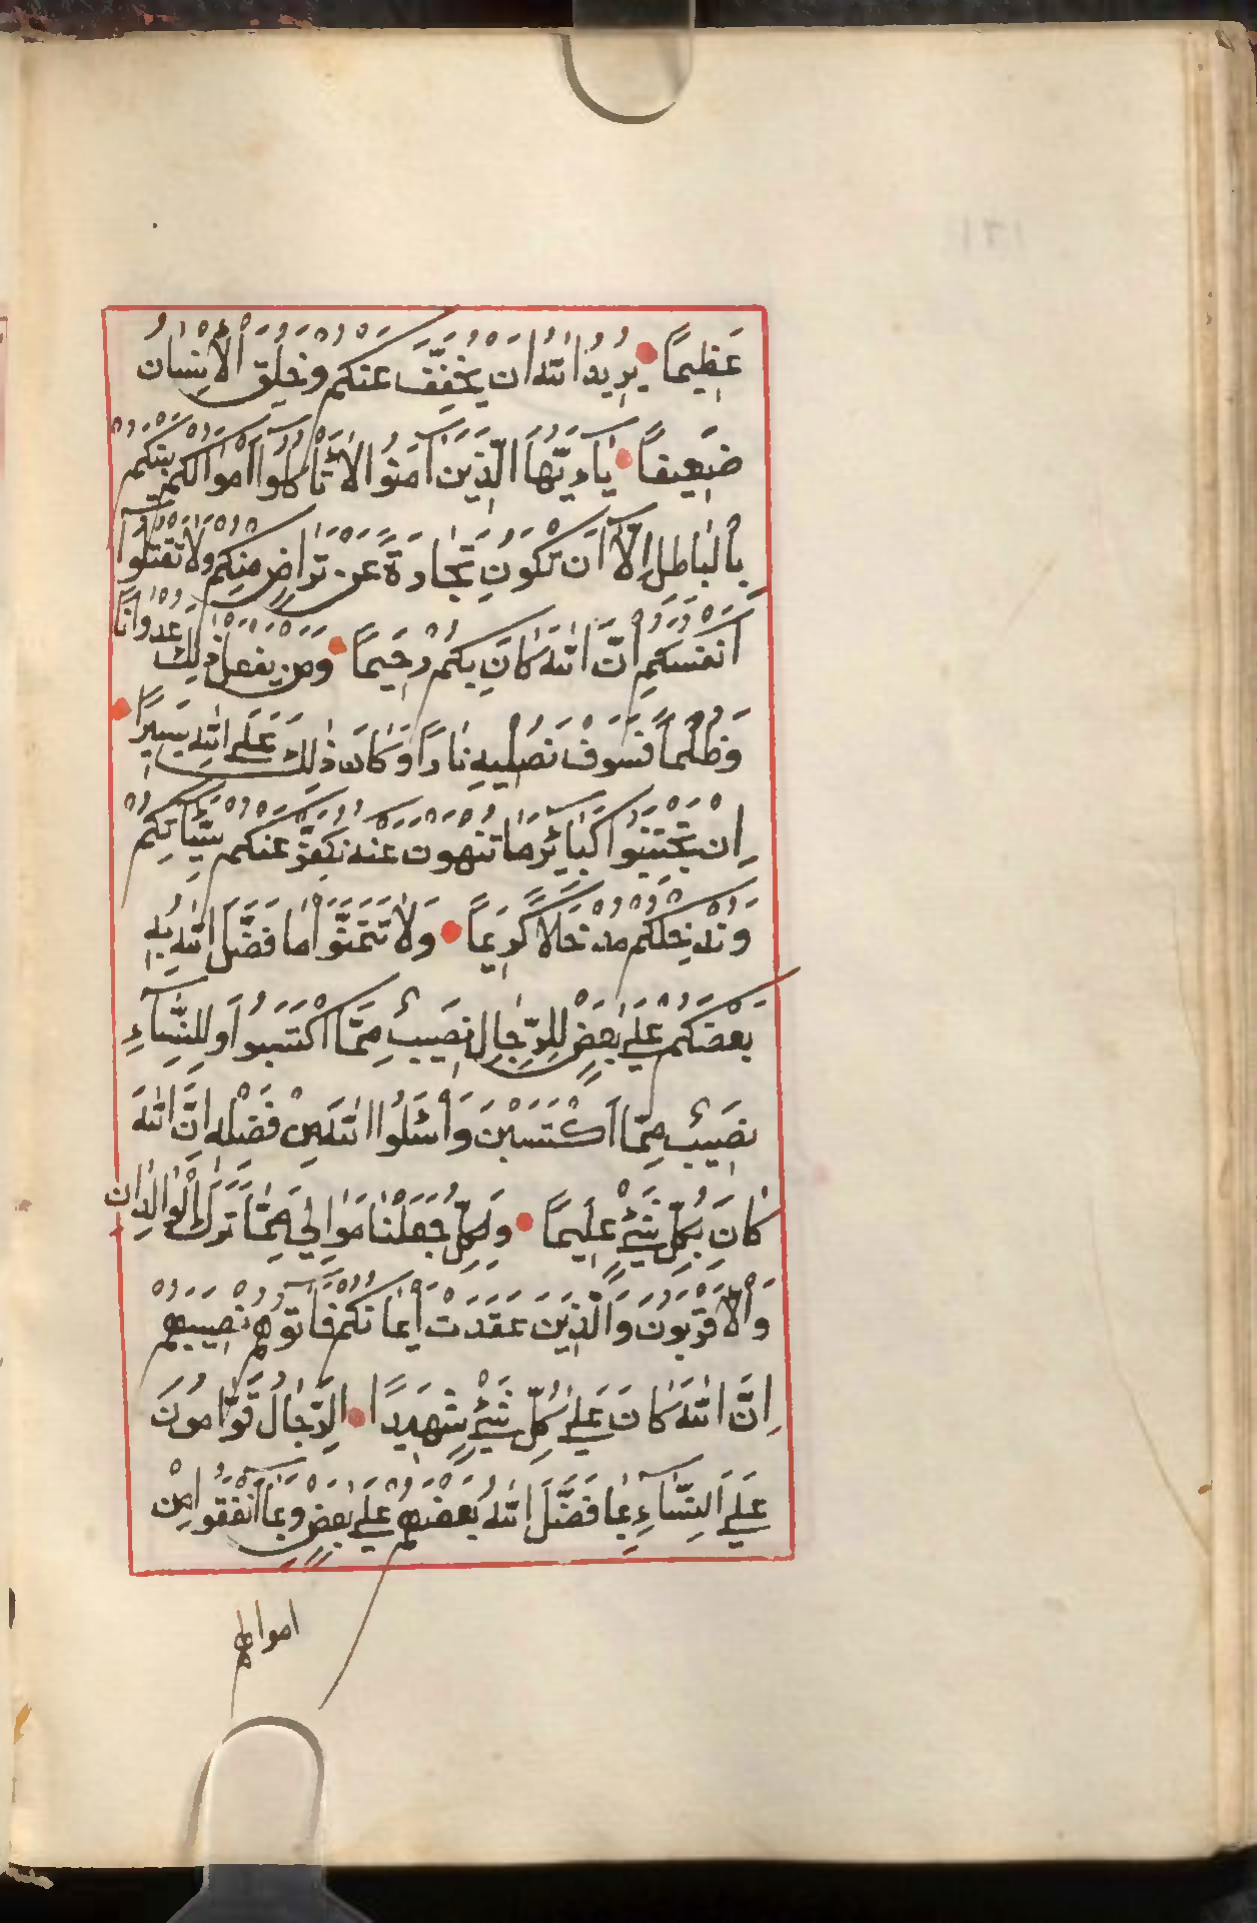 عَظِيمًا يُرِيدُ اللهُ اَنْ يُخَفِّفَ عَنْكُمْ وَخُلِقَ الْاِنْسَانُ
ضَعِيفًا يَاءَيُّهَا الَّذِينَ آمَنُوا لَا تَأْكُلُوا اَمْوَالَكُمْ بَيْنَكُمْ
بِالْبَاطِلِ اِلَّا اَنْ تَكُونَ تِجَارَةً عَنْ تَرَاضٍ مِنْكُمْ وَلَا تَقْتُلُوا
اَنْفُسَكُمْ اِنَّ اللهَ كَانَ بِكُمْ رَحِيمًا وَمَنْ يَفْعَلْ ذَلِكَ عُدْوَانًا
وَظُلْمًا فَسَوْفَ نُصْلِيهِ نَارًا وَكَانَ ذَلِكَ عَلَى اللهِ يَسِيرًا
اِنْ تَجْتَنِبُوا كَبَائِرَ مَا تُنْهَوْنَ عَنْهُ نُكَفِّرْ عَنْكُمْ سَيِّئَاتِكُمْ
وَنُدْخِلْكُمْ مُدْخَلًا كَرِيمًا وَلَا تَتَمَنَّوْا مَا فَضَّلَ اللهُ بِهِ
بَعْضَكُمْ عَلَى بَعْضٍ لِلرِّجَالِ نَصِيبٌ مِمَّا اكْتَسَبُوا وَلِلنِّسَاءِ
نَصِيبٌ مِمَّا اكْتَسَبْنَ وَاسْئَلُوا اللهَ مِنْ فَضْلِهِ اِنَّ اللهَ
كَانَ بِكُلِّ شَيْءٍ عَلِيمًا وَلِكُلٍّ جَعَلْنَا مَوَالِيَ مِمَّا تَرَكَ الْوَالِدَانِ
وَالْاَقْرَبُونَ وَالَّذِينَ عَقَدَتْ اَيْمَانُكُمْ فَآتُوهُمْ نَصِيبَهُمْ
اِنَّ اللهَ كَانَ عَلَى كُلِّ شَيْءٍ شَهِيدًا الرِّجَالُ قَوَّامُونَ
عَلَى النِّسَاءِ بِمَا فَضَّلَ اللهُ بَعْضَهُمْ عَلَى بَعْضٍ وَبِمَا اَنْفَقُوا مِنْ
اموالهم